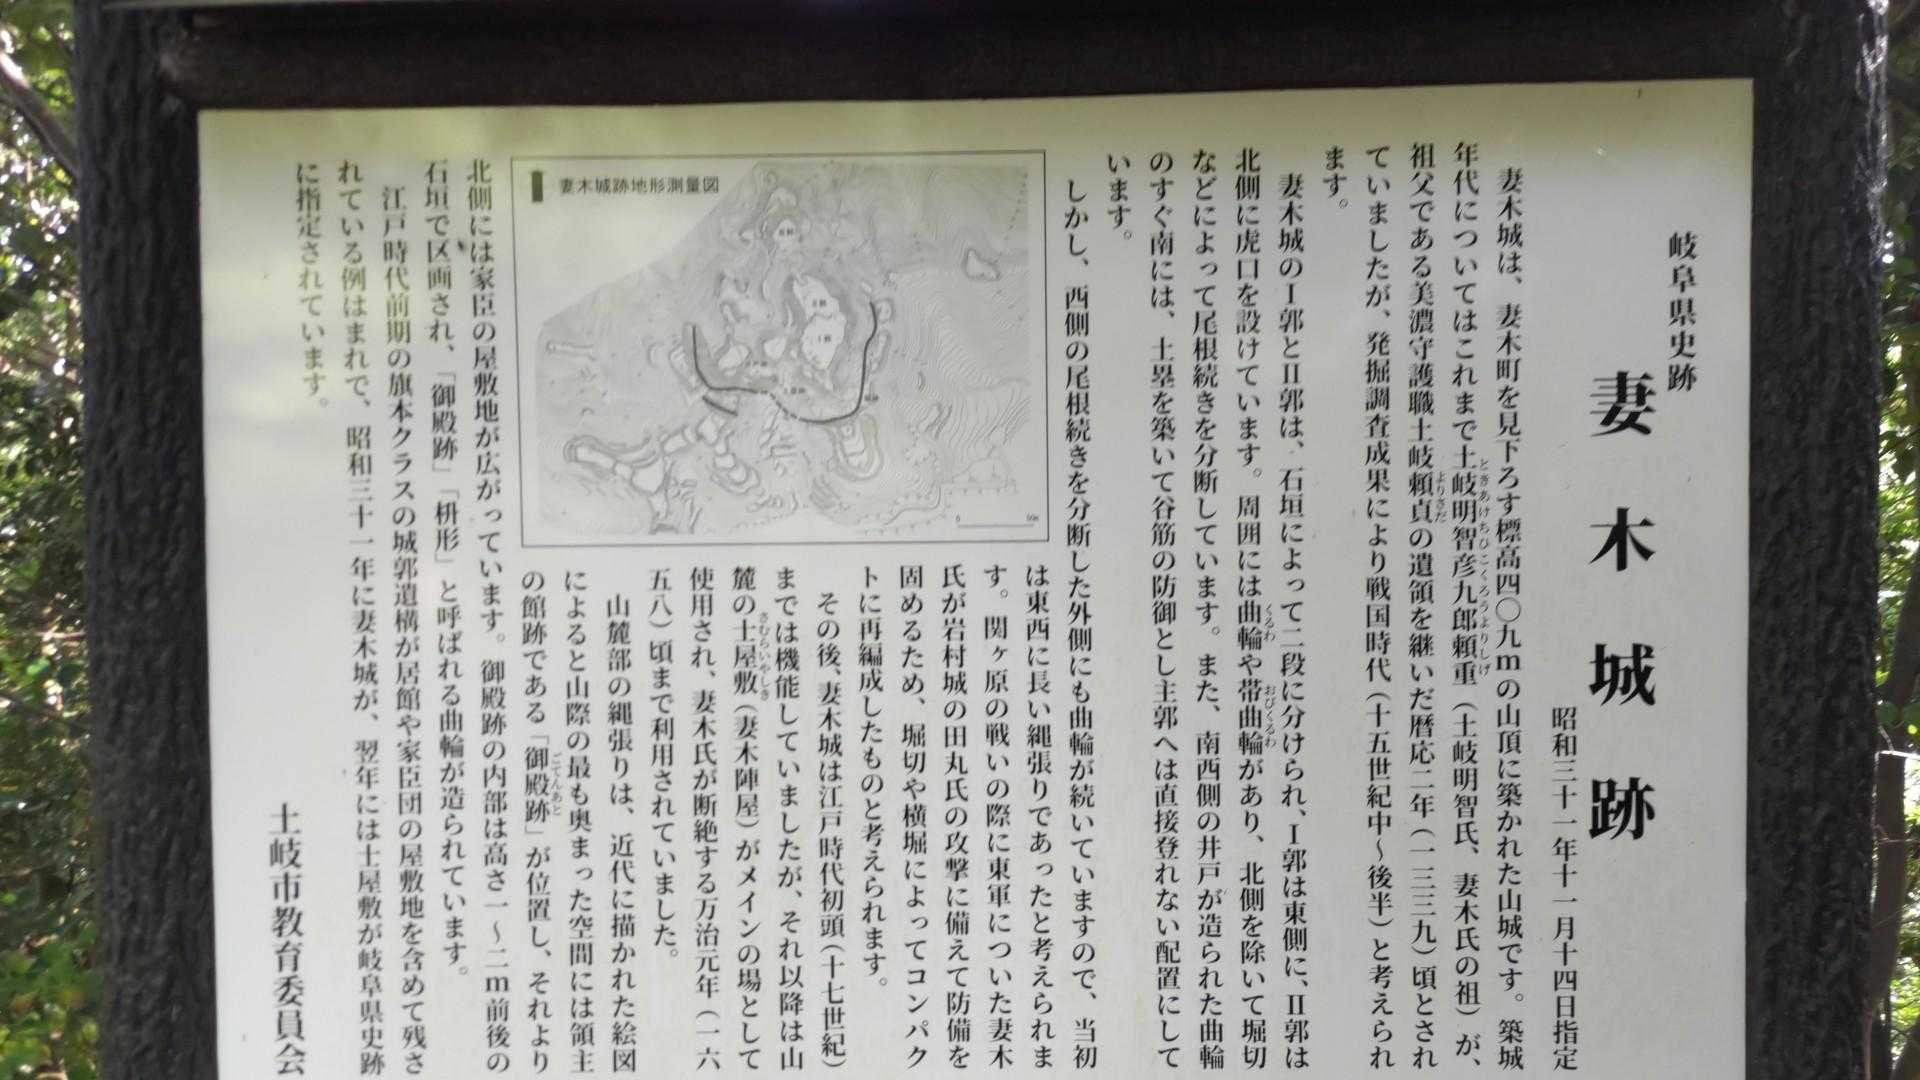 岐阜県史跡
妻木城跡
昭和三十一年十一月十四日指定
妻木城は、妻木町を見下ろす標高四〇九mの山頂に築かれた山城です。築城
年代についてはこれまで土岐明智彦九郎頼重（土岐明智氏、妻木氏の祖）が、
ときあけちひこくろうよりしげ
祖父である美濃守護職土岐頼貞の遺領を継いだ暦応二年（一三三九）頃とされ
よりさだ
ていましたが、発掘調査成果により戦国時代（十五世紀中～後半）と考えられ
ます。
妻木城のⅠ郭とⅡ郭は、石垣によって二段に分けられ、Ⅰ郭は東側に、Ⅱ郭は
北側に虎口を設けています。周囲には曲輪や帯曲輪があり、北側を除いて堀切
くるわ
おびくるわ
などによって尾根続きを分断しています。また、南西側の井戸が造られた曲輪
のすぐ南には、土塁を築いて谷筋の防御とし主郭へは直接登れない配置にして
います。
しかし、西側の尾根続きを分断した外側にも曲輪が続いていますので、当初
は東西に長い縄張りであったと考えられま
す。関ヶ原の戦いの際に東軍についた妻木
氏が岩村城の田丸氏の攻撃に備えて防備を
固めるため、堀切や横堀によってコンパク
トに再編成したものと考えられます。
その後、妻木城は江戸時代初頭（十七世紀）
までは機能していましたが、それ以降は山
麓の士屋敷（妻木陣屋）がメインの場として
さむらいやしき
使用され、妻木氏が断絶する万治元年（一六
五八）頃まで利用されていました。
山麓部の縄張りは、近代に描かれた絵図
によると山際の最も奥まった空間には領主
の館跡である「御殿跡」が位置し、それより
ごてんあと
妻木城跡地形測量図
北側には家臣の屋敷地が広がっています。御殿跡の内部は高さ一～二m前後の
石垣で区画され、「御殿跡」「枡形」と呼ばれる曲輪が造られています。
江戸時代前期の旗本クラスの城郭遺構が居館や家臣団の屋敷地を含めて残さ
れている例はまれで、昭和三十一年に妻木城が、翌年には士屋敷が岐阜県史跡
に指定されています。
土岐市教育委員会